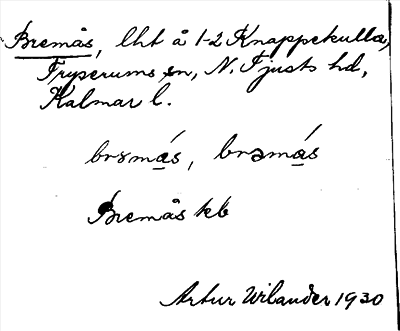 Bremås, lht å 1-2 Knappekulla,
Tryserums sn, N. Tjusts hd,
Kalmar l.
brɤmá̱s, brəmá̱s
Bremås kb
Artur Wilander 1930